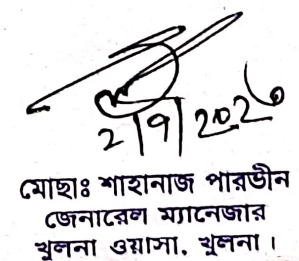 ২|৭|২০২৩
মোছাঃ শাহানাজ পারভীন
জেনারেল ম্যানেজার
খুলনা ওয়াসা, খুলনা।